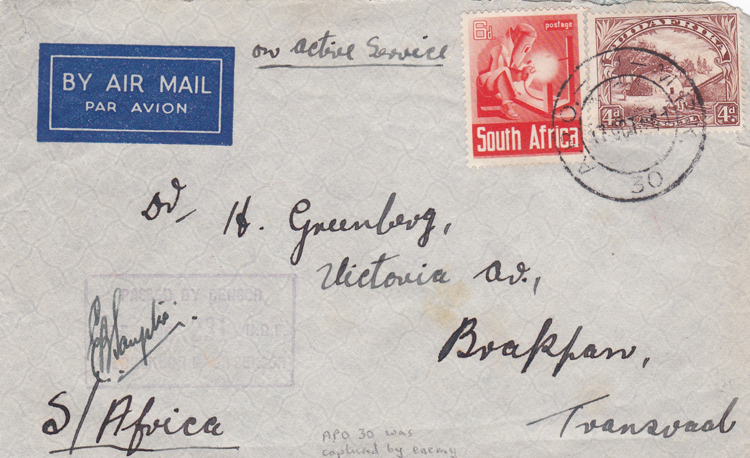 BY AIR MAIL
PAR AVION
on active Service
6d postage
South Africa
SUIDAFRIKA
4d 4d
30
Dr. H. Greenberg,
Victoria
PASSED BY CENSOR
U.D.F.
Brakpan,
S/Africa
Transvaal
APO 30 was
captured by enemy